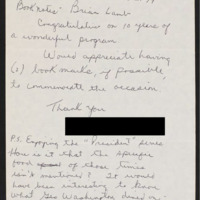 Booknotes - Brian Lamb
Congratulations on 10 years of
a wonderful program.
Would appreciate having
(1) book mark, if possible
to commemorate the occasion.
Thank you
P.S. Enjoying the "President" series
How is it that the
of those times
isn't mentioned? It would
have been interesting to know
what Geo Washington